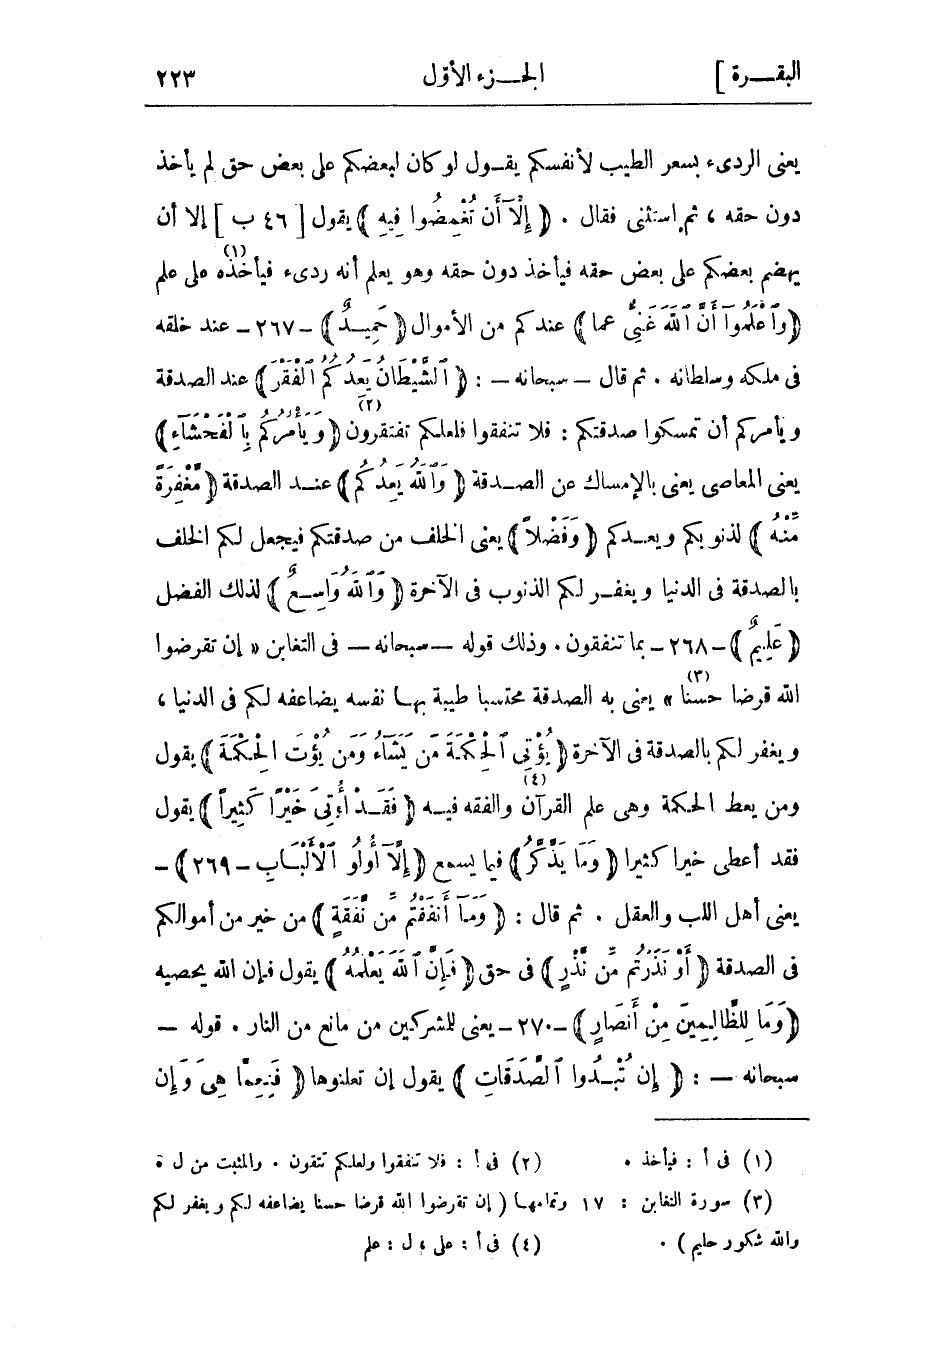 البقـــرة ] الجـــزء الأوّل ٢٢٣
يعنى الردىء بسعر الطيب لأنفسكم يقـول لو كان لبعضكم على بعض حق لم يأخذ
دون حقه ، ثم استثنى فقال . ﴿ إِلَّآ أَن تُغْمِضُوا فِيهِ ﴾ يقول [ ٤٦ ب ] إلا أن
يهضم بعضكم على بعض حقه فيأخذ دون حقه وهو يعلم أنه ردىء فيأخذه (١) على علم
﴿ وَٱعْلَمُوٓا أَنَّ ٱللَّهَ غَنِىٌّ عما ﴾ عندكم من الأموال ﴿ حَمِيـدٌ ﴾ - ٢٦٧ - عند خلقه
فى ملكه وسلطانه . ثم قال - سبحانه - : ﴿ ٱلشَّيْطَانُ يَعِدُكُمُ ٱلْفَقْرَ ﴾ عند الصدقة
ويأمركم أن تمسكوا صدقتكم : فلا تنفقوا فلعلكم تفتقرون (٢) ﴿ وَيَأْمُرُكُم بِٱلْفَحْشَآءِ ﴾
يعنى المعاصى يعنى بالإمساك عن الصـدقة ﴿ وَٱللَّهُ يَعِدُكُم ﴾ عنـد الصدقة ﴿ مَّغْفِرَةً
مِّنْهُ ﴾ لذنوبكم ويعـدكم ﴿ وَفَضْلاً ﴾ يعنى الخلف من صدقتكم فيجعل لكم الخلف
بالصدقة فى الدنيا ويغفـر لكم الذنوب فى الآخرة ﴿ وَٱللَّهُ وَاسِـعٌ ﴾ لذلك الفضل
﴿ عَلِيمٌ ﴾ - ٢٦٨ - بما تنفقون . وذلك قوله - سبحانه - فى التغابن « إن تقرضوا
الله قرضا حسنا (٣) » يعنى به الصدقة محتسبا طيبة بهـا نفسه يضاعفه لكم فى الدنيا ،
ويغفر لكم بالصدقة فى الآخرة ﴿ يُؤْتِى ٱلْحِكْمَةَ مَن يَشَآءُ وَمَن يُؤْتَ الْحِكْمَةَ ﴾ يقول
ومن يعط الحكمة وهى علم القرآن (٤) والفقه فيـه ﴿ فَقَـدْ أُوتِىَ خَيْرًا كَثِيراً ﴾ يقول
فقد أعطى خيرا كثيرا ﴿ وَمَا يَذَّكَّرُ ﴾ فيما يسمع ﴿ إِلَّآ أُولُو ٱلْأَلْبَـابِ - ٢٦٩ ﴾ -
يعنى أهل اللب والعقل . ثم قال : ﴿ وَمَآ أَنفَقْتُم مِّن نَّفَقَةٍ ﴾ من خير من أموالكم
فى الصدقة ﴿ أَوْ نَذَرْتُم مِّن نَّذْرٍ ﴾ فى حق ﴿ فَإِنَّ ٱللَّهَ يَعْلَمُهُ ﴾ يقول فإن الله يحصيه
﴿ وَمَا لِلظَّالِمِينَ مِنْ أَنصَارٍ ﴾ - ٢٧٠ - يعنى للمشركين من مانع من النار . قوله -
سبحانه - : ﴿ إِن تُبْـدُوا ٱلصَّدَقَاتِ ﴾ يقول إن تعلنوها ﴿ فَنِعِمَّا هِىَ وَإِن
(١) فى أ : فيأخذ . (٢) فى أ : فلا تنفقوا ولعلكم تتقون . والمثبت من ل ة
(٣) سورة التغابن : ١٧ وتمامهـا ( إن تقرضوا الله قرضا حسنا يضاعفه لكم ويغفر لكم
والله شكور حليم ) . (٤) فى أ : على ، ل : علم